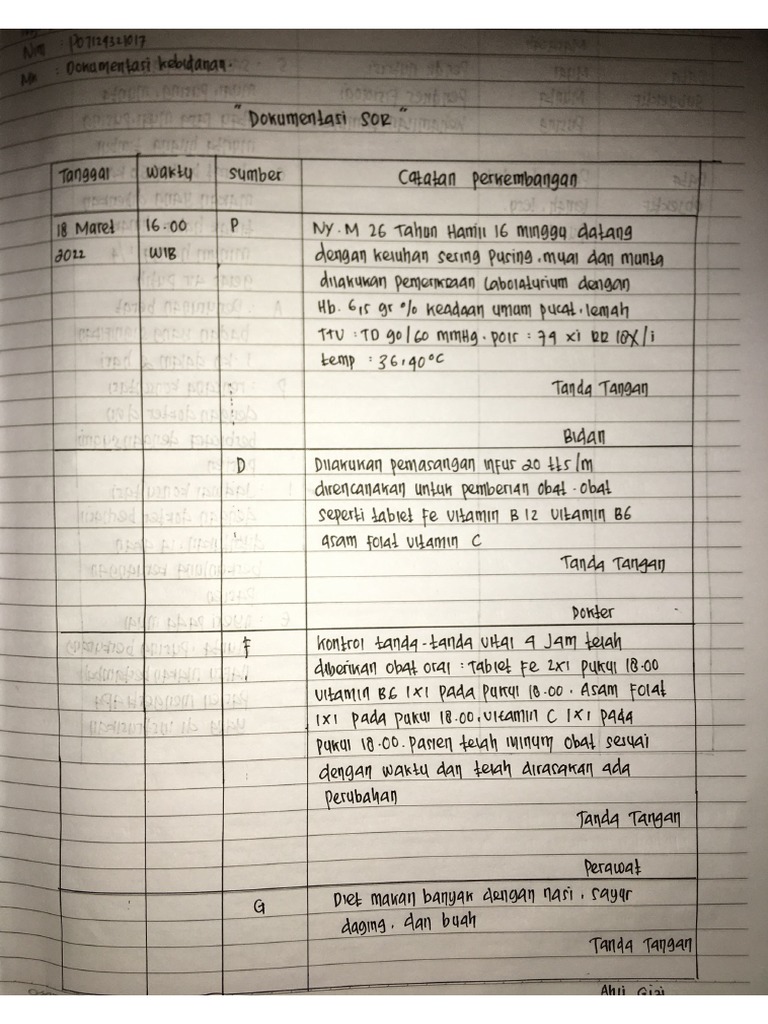 Nim : P07124321017
Mk : Dokumentasi kebidanan.
"Dokumentasi SOR"
Tanggal Waktu Sumber Catatan perkembangan
18 Maret 16.00 P Ny.M 26 Tahun Hamil 16 minggu datang
2022 WIB dengan keluhan sering pusing, mual dan munta
dilakukan pemeriksaan Laboraturium dengan
Hb. 6,5 gr % keadaan umum pucat, lemah
TTV : TD 90/60 mmHg. pols : 74 xi RR 18X/i
temp : 36,40°C
Tanda Tangan
Bidan
D Dilakukan pemasangan infus 20 tts/m
direncanakan untuk pemberian obat-obat
seperti tablet Fe vitamin B12 vitamin B6
asam folat vitamin C
Tanda Tangan
Dokter
F kontrol tanda-tanda vital 4 Jam telah
diberikan obat oral : Tablet Fe 2X1 pukul 18.00
vitamin B6 1X1 pada pukul 18.00. Asam Folat
1X1 pada pukul 18.00, vitamin C 1X1 pada
pukul 18.00. pasien telah minum obat sesuai
dengan waktu dan telah dirasakan ada
perubahan
Tanda Tangan
Perawat
G Diet makan banyak dengan nasi, sayur
daging, dan buah
Tanda Tangan
Ahli Gizi